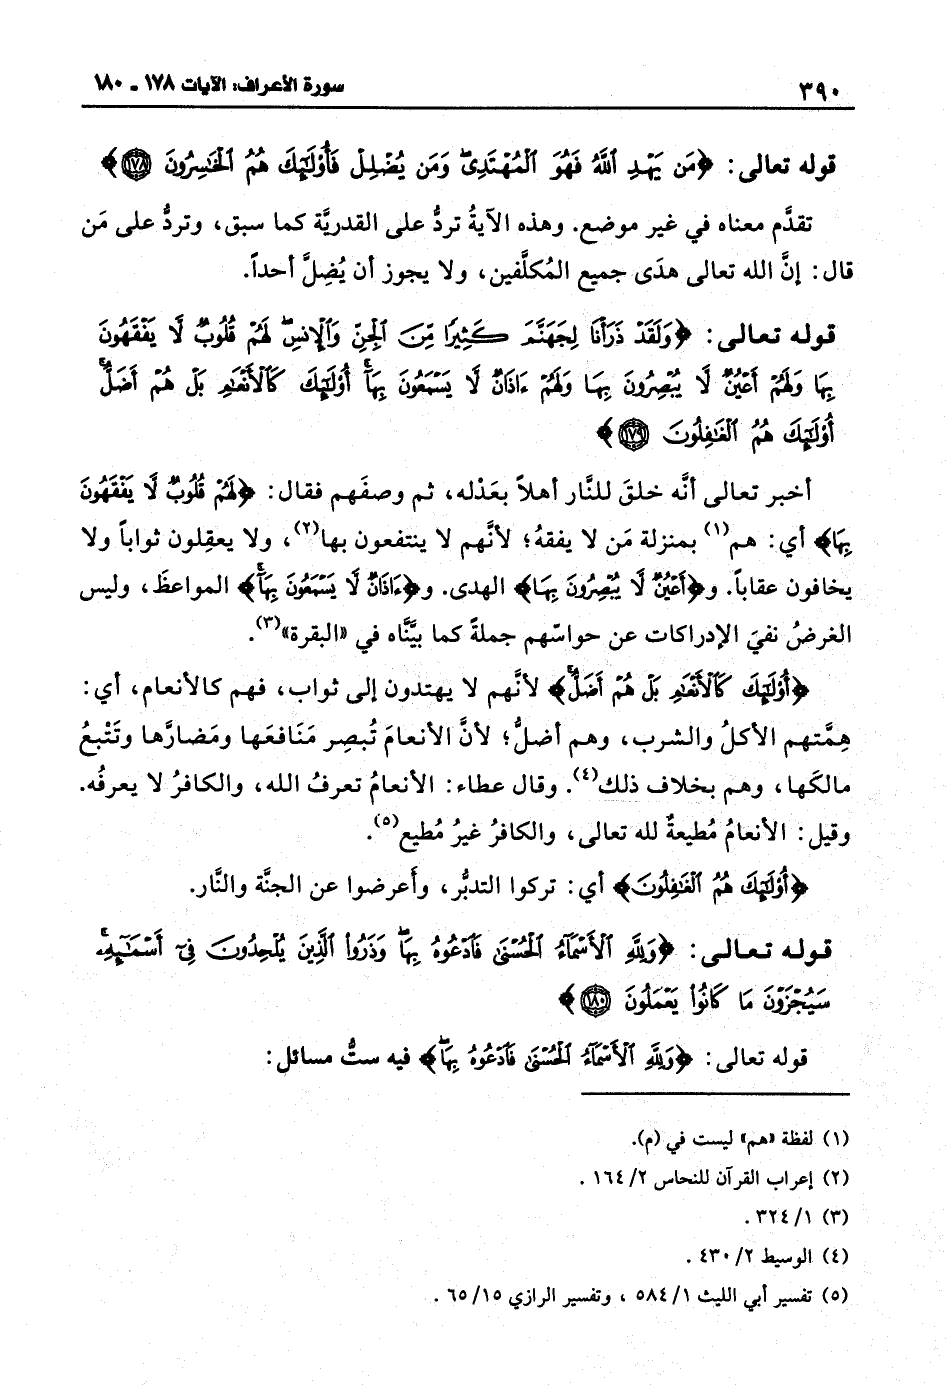 ٣٩٠
سورة الأعراف: الآيات ١٧٨ - ١٨٠
قوله تعالى: ﴿مَن يَهْدِ ٱللَّهُ فَهُوَ ٱلْمُهْتَدِى وَمَن يُضْلِلْ فَأُوْلَٰٓئِكَ هُمُ ٱلْخَٰسِرُونَ ١٧٨﴾
تقدَّم معناه في غير موضع. وهذه الآيةُ تردُّ على القدريَّة كما سبق، وتردُّ على مَن
قال: إنَّ الله تعالى هدَى جميع المُكلَّفين، ولا يجوز أن يُضِلَّ أحداً.
قوله تعالى: ﴿وَلَقَدْ ذَرَأْنَا لِجَهَنَّمَ كَثِيرًا مِّنَ ٱلْجِنِّ وَٱلْإِنسِ لَهُمْ قُلُوبٌ لَّا يَفْقَهُونَ
بِهَا وَلَهُمْ أَعْيُنٌ لَّا يُبْصِرُونَ بِهَا وَلَهُمْ ءَاذَانٌ لَّا يَسْمَعُونَ بِهَآ أُوْلَٰٓئِكَ كَٱلْأَنْعَٰمِ بَلْ هُمْ أَضَلُّ
أُوْلَٰٓئِكَ هُمُ ٱلْغَٰفِلُونَ ١٧٩﴾
أخبر تعالى أنَّه خلقَ للنَّار أهلاً بعَدْله، ثم وصفَهم فقال: ﴿لَهُمْ قُلُوبٌ لَّا يَفْقَهُونَ
بِهَا﴾ أي: هم(١) بمنزلة مَن لا يفقهُ؛ لأنَّهم لا ينتفعون بها(٢)، ولا يعقِلون ثواباً ولا
يخافون عقاباً. و﴿أَعْيُنٌ لَّا يُبْصِرُونَ بِهَا﴾ الهدى. و﴿ءَاذَانٌ لَّا يَسْمَعُونَ بِهَآ﴾ المواعظَ، وليس
الغرضُ نفيَ الإدراكات عن حواسّهم جملةً كما بيَّنَّاه في «البقرة»(٣).
﴿أُوْلَٰٓئِكَ كَٱلْأَنْعَٰمِ بَلْ هُمْ أَضَلُّ﴾ لأنَّهم لا يهتدون إلى ثواب، فهم كالأنعام، أي:
هِمَّتهم الأكلُ والشرب، وهم أضلُّ؛ لأنَّ الأنعامَ تُبصِر مَنَافعَها ومَضارَّها وتَتْبعُ
مالكَها، وهم بخلاف ذلك(٤). وقال عطاء: الأنعامُ تعرفُ الله، والكافرُ لا يعرفُه.
وقيل: الأنعامُ مُطيعةٌ لله تعالى، والكافرُ غيرُ مُطيع(٥).
﴿أُوْلَٰٓئِكَ هُمُ ٱلْغَٰفِلُونَ﴾ أي: تركوا التدبُّر، وأَعرضوا عن الجنَّة والنَّار.
قوله تعالى: ﴿وَلِلَّهِ ٱلْأَسْمَآءُ ٱلْحُسْنَىٰ فَٱدْعُوهُ بِهَا وَذَرُواْ ٱلَّذِينَ يُلْحِدُونَ فِىٓ أَسْمَٰٓئِهِۦ
سَيُجْزَوْنَ مَا كَانُواْ يَعْمَلُونَ ١٨٠﴾
قوله تعالى: ﴿وَلِلَّهِ ٱلْأَسْمَآءُ ٱلْحُسْنَىٰ فَٱدْعُوهُ بِهَا﴾ فيه ستُّ مسائل:
(١) لفظة «هم» ليست في (م).
(٢) إعراب القرآن للنحاس ٢/ ١٦٤ .
(٣) ١/ ٣٢٤ .
(٤) الوسيط ٢/ ٤٣٠ .
(٥) تفسير أبي الليث ١/ ٥٨٤ ، وتفسير الرازي ١٥/ ٦٥ .